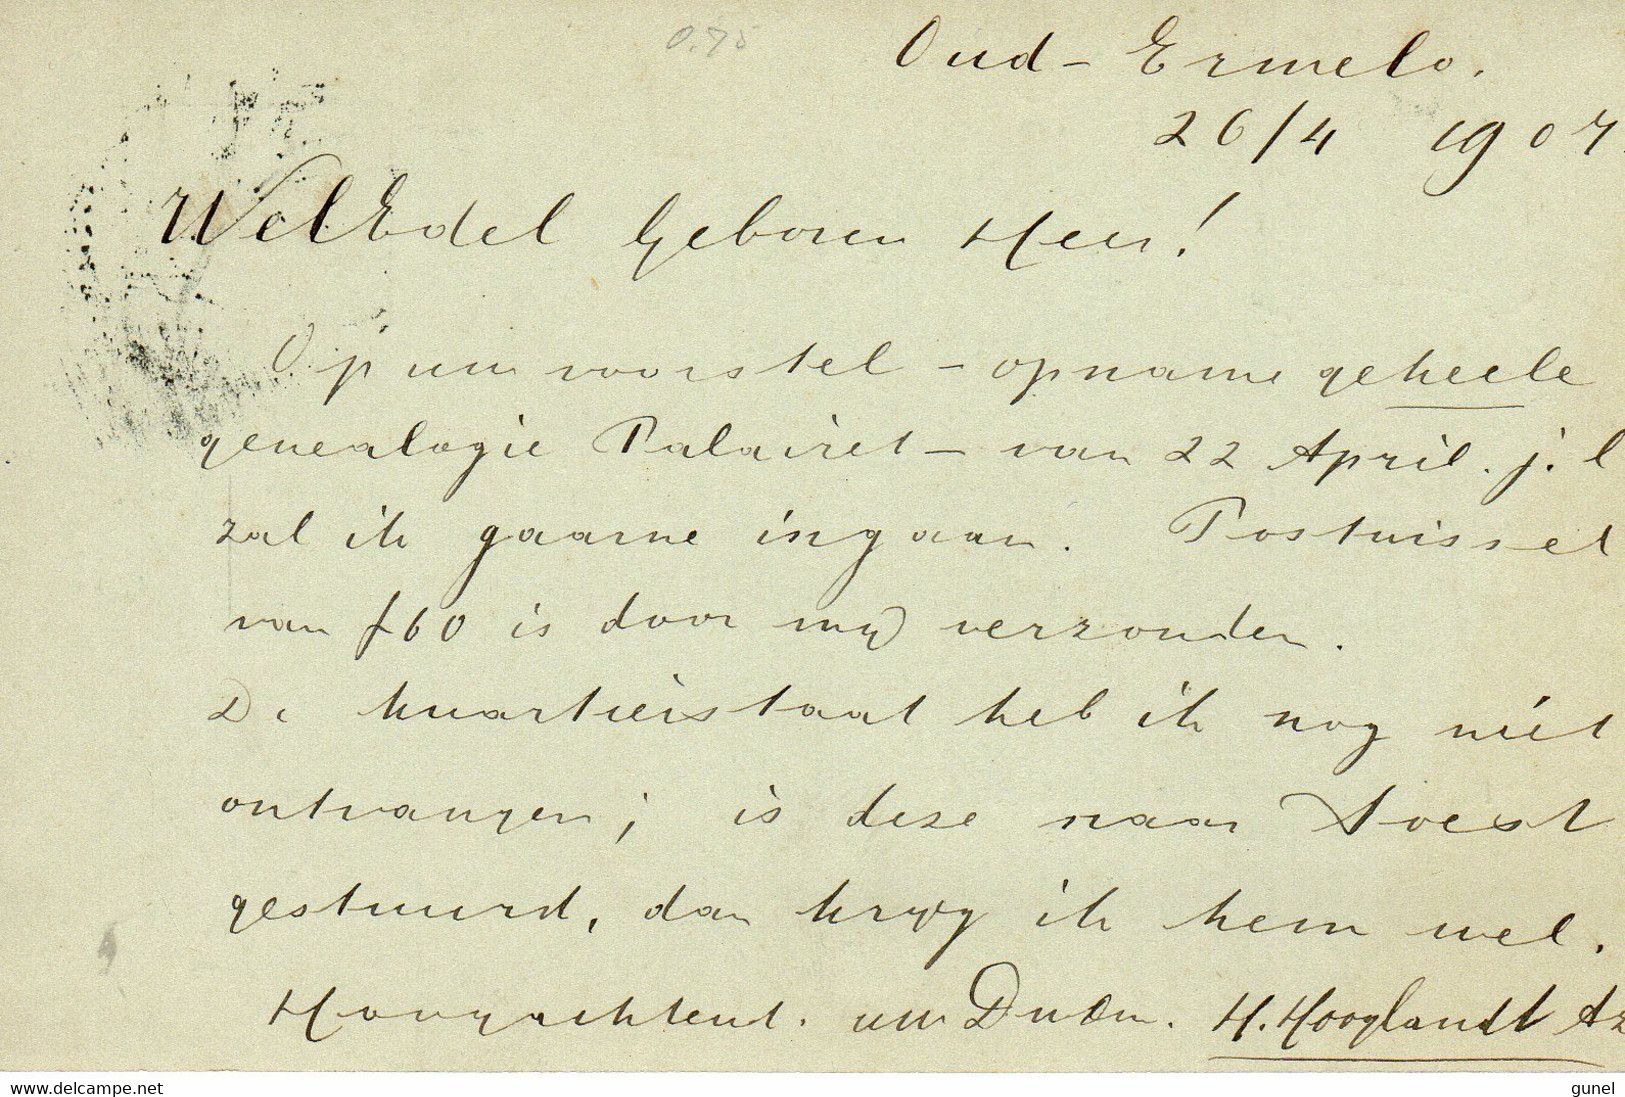 0.75
Oud - Ermelo.
26/4 1907.
WelEdel Geboren Heer!
Op uw voorstel - opname geheele
genealogie Palairet - van 22 April. j.l
zal ik gaarne ingaan. Postwissel
van f60 is door mij verzonden.
De kwartierstaat heb ik nog niet
ontvangen; is deze naar Soest
gestuurd, dan krijg ik hem wel.
Hoogachtend. uw Dndn. H. Hooglandt Az
www.delcampe.net
gunel